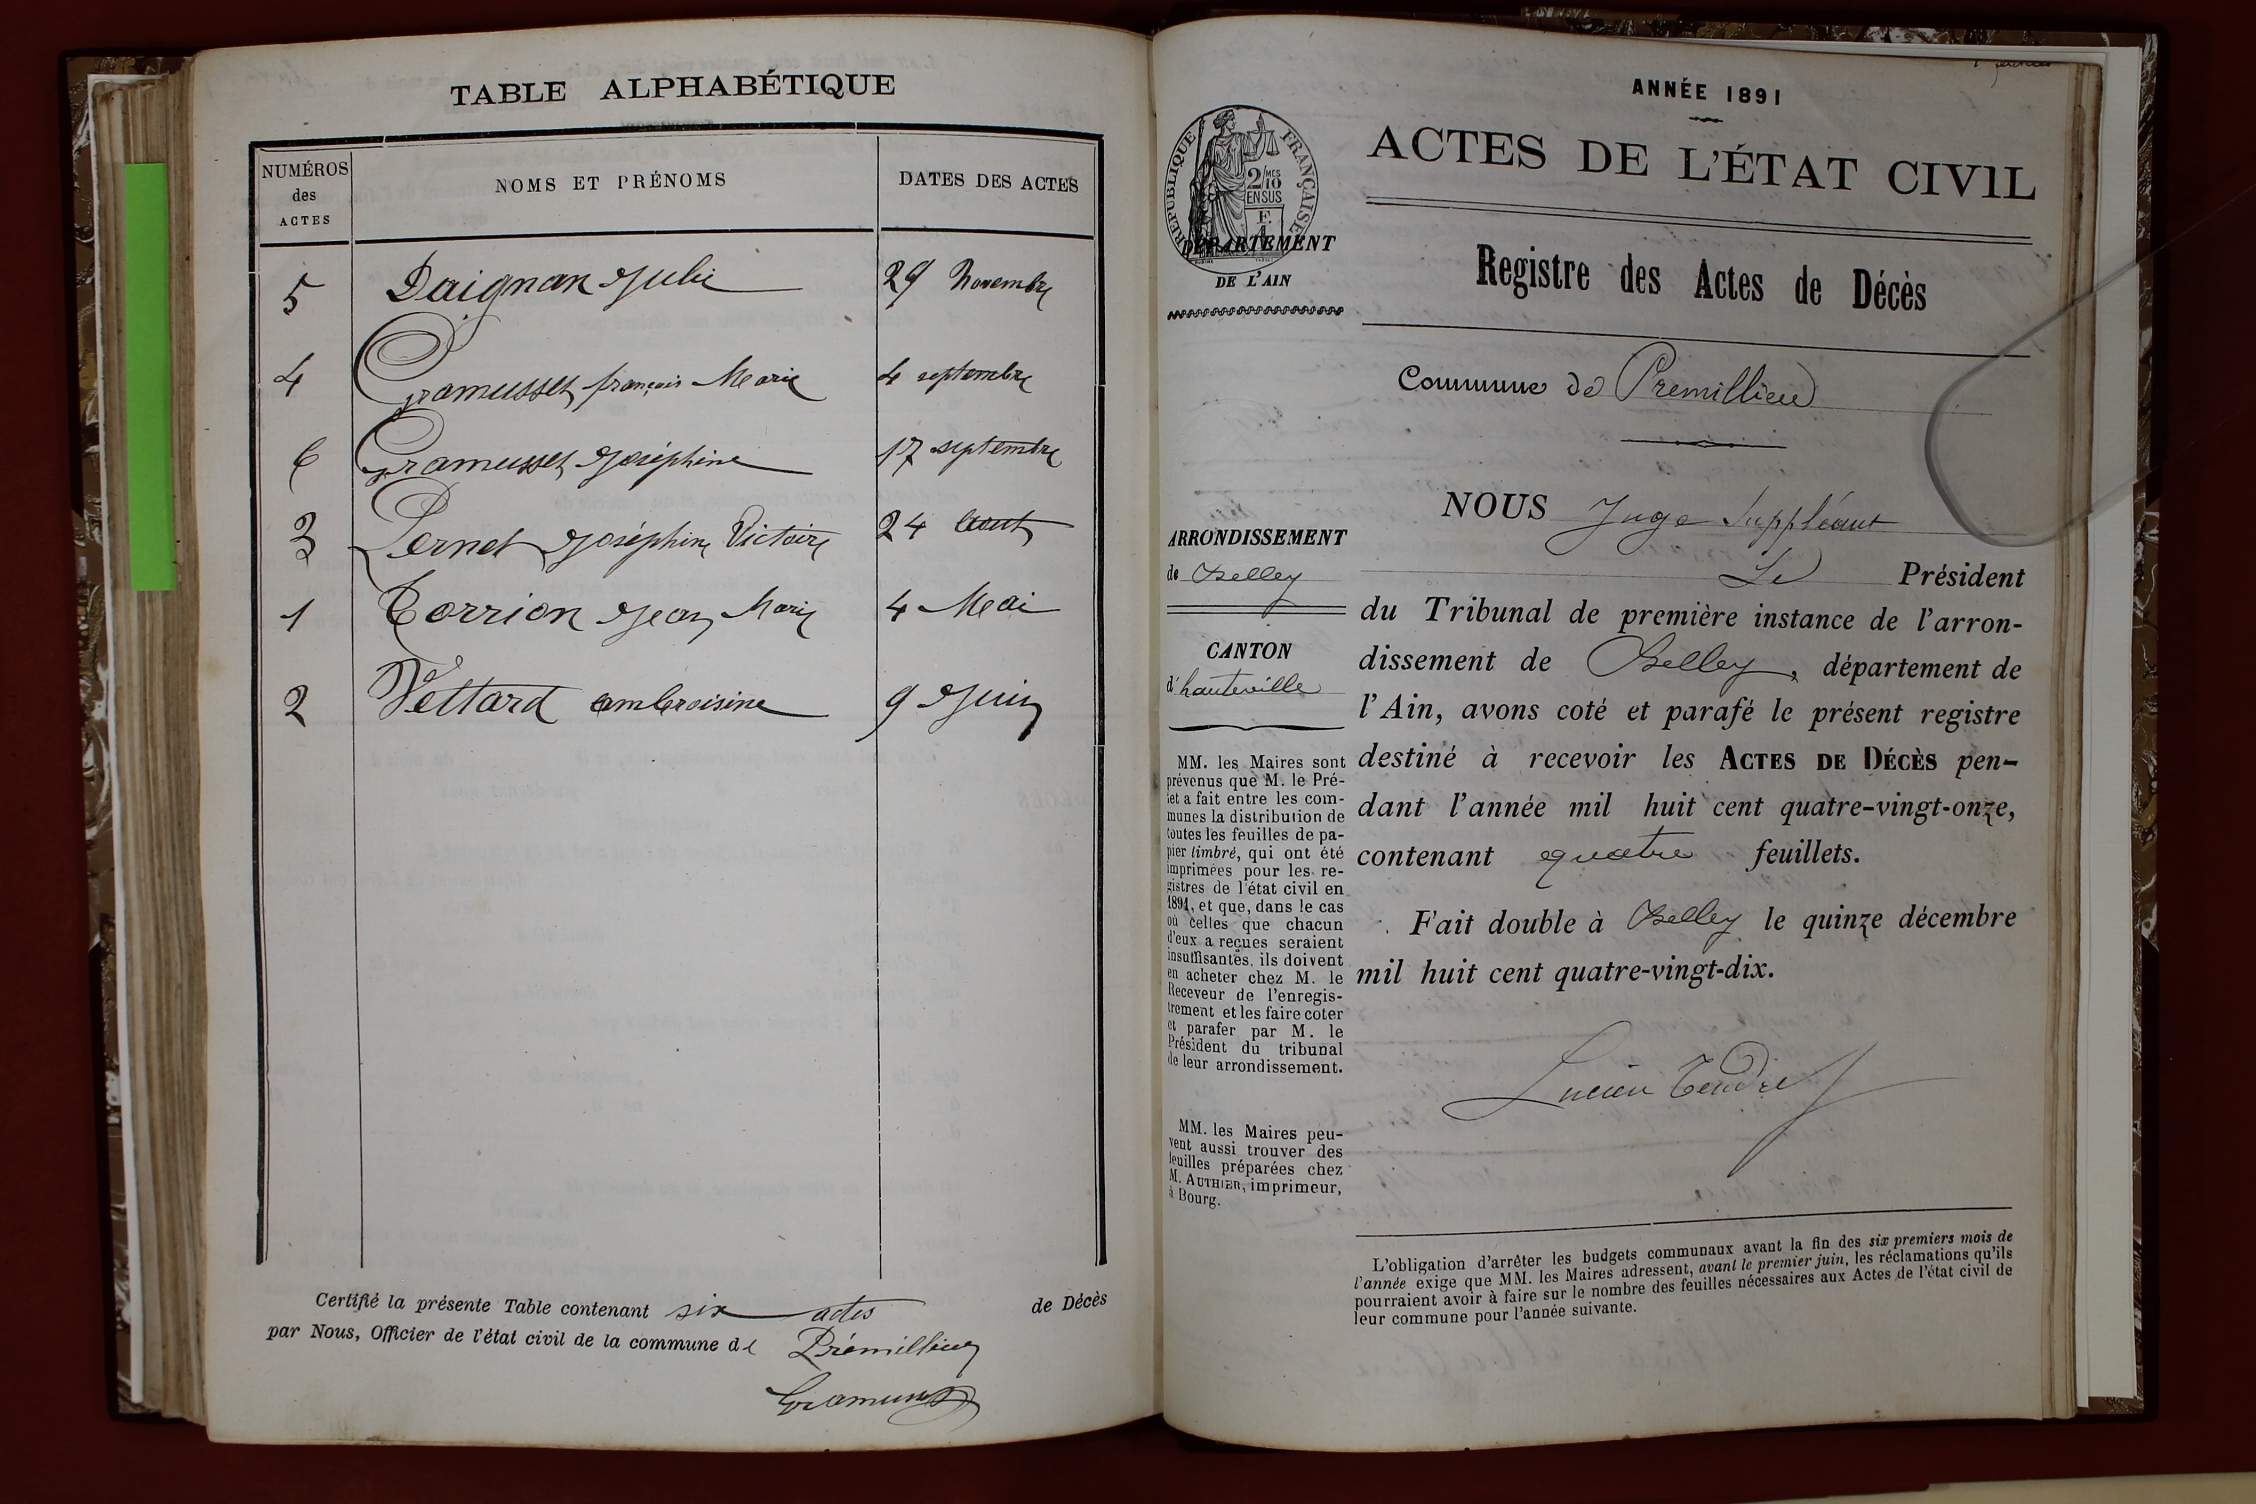 TABLE ALPHABÉTIQUE
NUMÉROS
des
ACTES
NOMS ET PRÉNOMS
DATES DES ACTES
5 Daignan Julie 29 Novembre
4 Gramusset françois Marie 4 septembre
6 Gramusset Joséphine 17 septembre
3 Pernet Joséphine Victoire 24 aout
1 Torrion Jean Marie 4 Mai
2 Vettard ambroisine 9 Juin
Certifié la présente Table contenant six actes de Décès
par Nous, Officier de l'état civil de la commune de Prémillieu
Gramusset
ANNÉE 1891
ACTES DE L'ÉTAT CIVIL
RÉPUBLIQUE FRANÇAISE
2/10 MES
EN SUS
DÉPARTEMENT
DE L'AIN
Registre des Actes de Décès
Commune de Premillieu
ARRONDISSEMENT
de Belley
CANTON
d'hauteville
MM. les Maires sont
prévenus que M. le Pré-
fet a fait entre les com-
munes la distribution de
toutes les feuilles de pa-
pier timbré, qui ont été
imprimées pour les re-
gistres de l'état civil en
1891, et que, dans le cas
où celles que chacun
d'eux a reçues seraient
insuffisantes, ils doivent
en acheter chez M. le
Receveur de l'enregis-
trement et les faire coter
et parafer par M. le
Président du tribunal
de leur arrondissement.
MM. les Maires peu-
vent aussi trouver des
feuilles préparées chez
M. AUTHIER, imprimeur,
à Bourg.
NOUS Juge Suppléant
Le Président
du Tribunal de première instance de l'arron-
dissement de Belley, département de
l'Ain, avons coté et parafé le présent registre
destiné à recevoir les ACTES DE DÉCÈS pen-
dant l'année mil huit cent quatre-vingt-onze,
contenant quatre feuillets.
Fait double à Belley le quinze décembre
mil huit cent quatre-vingt-dix.
Lucien Tendret
L'obligation d'arrêter les budgets communaux avant la fin des six premiers mois de
l'année exige que MM. les Maires adressent, avant le premier juin, les réclamations qu'ils
pourraient avoir à faire sur le nombre des feuilles nécessaires aux Actes de l'état civil de
leur commune pour l'année suivante.